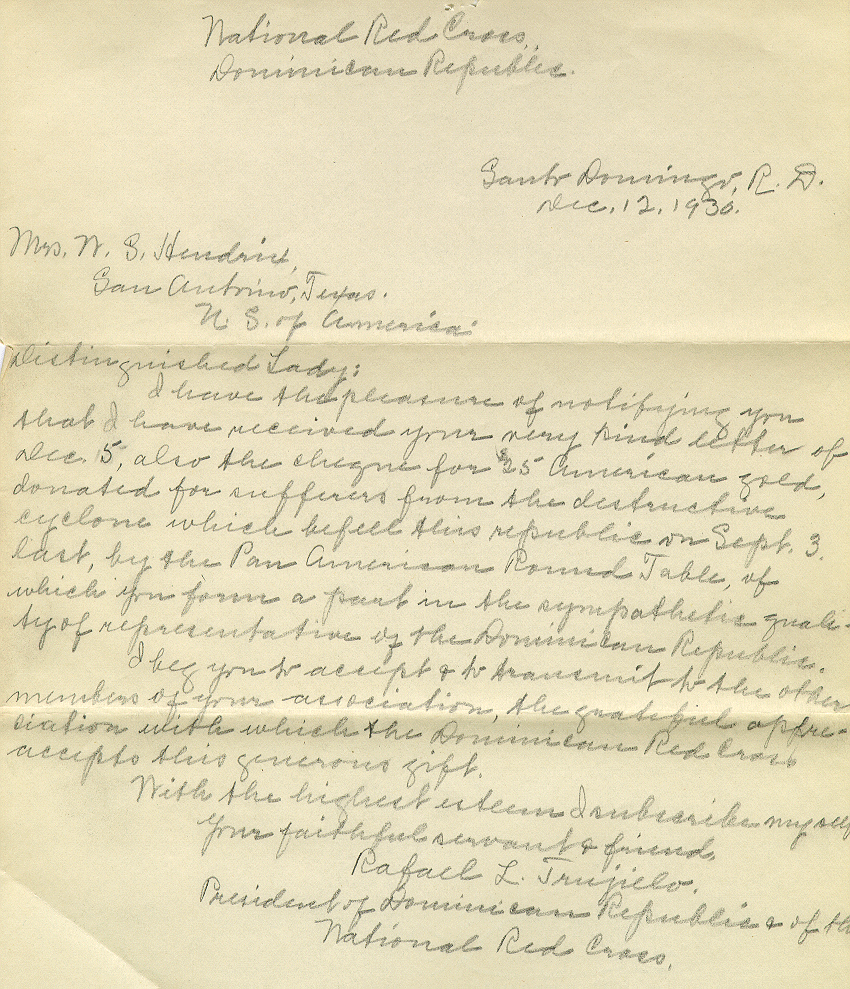 National Red Cross,
Dominican Republic.
Santo Domingo, R. D.
Dec. 12, 1930.
Mrs. W. S. Hendrix,
San Antonio, Texas.
U. S. of America.
Distinguished Lady:
I have the pleasure of notifying you
that I have received your very kind letter of
Dec. 5, also the cheque for $25 American gold,
donated for sufferers from the destructive
cyclone which befell this republic on Sept. 3.
last, by the Pan American Round Table, of
which you form a part in the sympathetic quali-
ty of representative of the Dominican Republic.
I beg you to accept & to transmit to the other
members of your association, the grateful appre-
ciation with which the Dominican Red Cross
accepts this generous gift.
With the highest esteem I subscribe myself
Your faithful servant & friend,
Rafael L. Trujielo.
President of Dominican Republic & of th
National Red Cross.